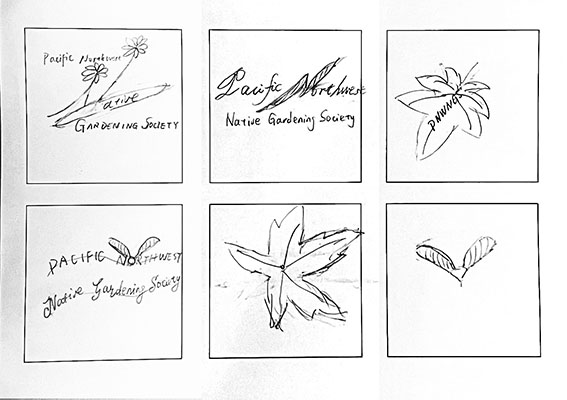 Pacific Northwest
Native
GARDENING SOCIETY
Pacific Northwest
Native Gardening Society
PNWNGS
PACIFIC NORTHWEST
Native Gardening Society